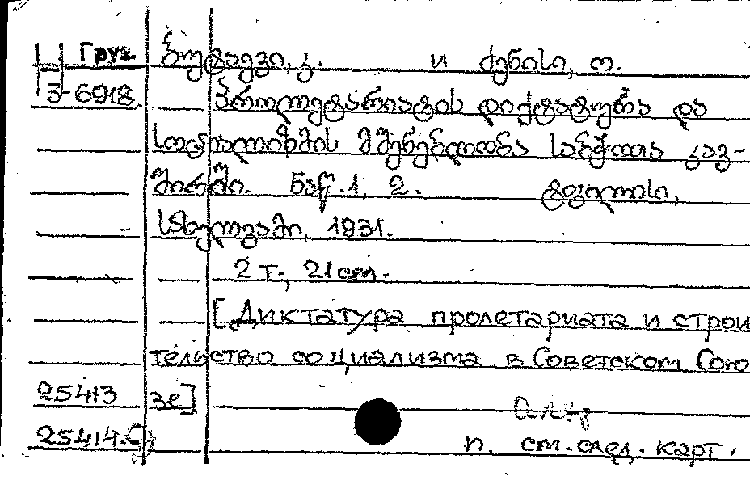 Груз. ბუტაევი, კ. и ქენისი, ო.
3-6918. პროლეტარიატის დიქტატურა და
სოციალიზმის მშენებლობა საბჭოთა კავ-
შირში. ნაწ. 1, 2. ტფილისი,
სახელგამი, 1931.
2 т., 21 cm.
[Диктатура пролетариата и строи
тельство социализма в Советском Сою
25413 зе]
25414 п. см. след. карт.